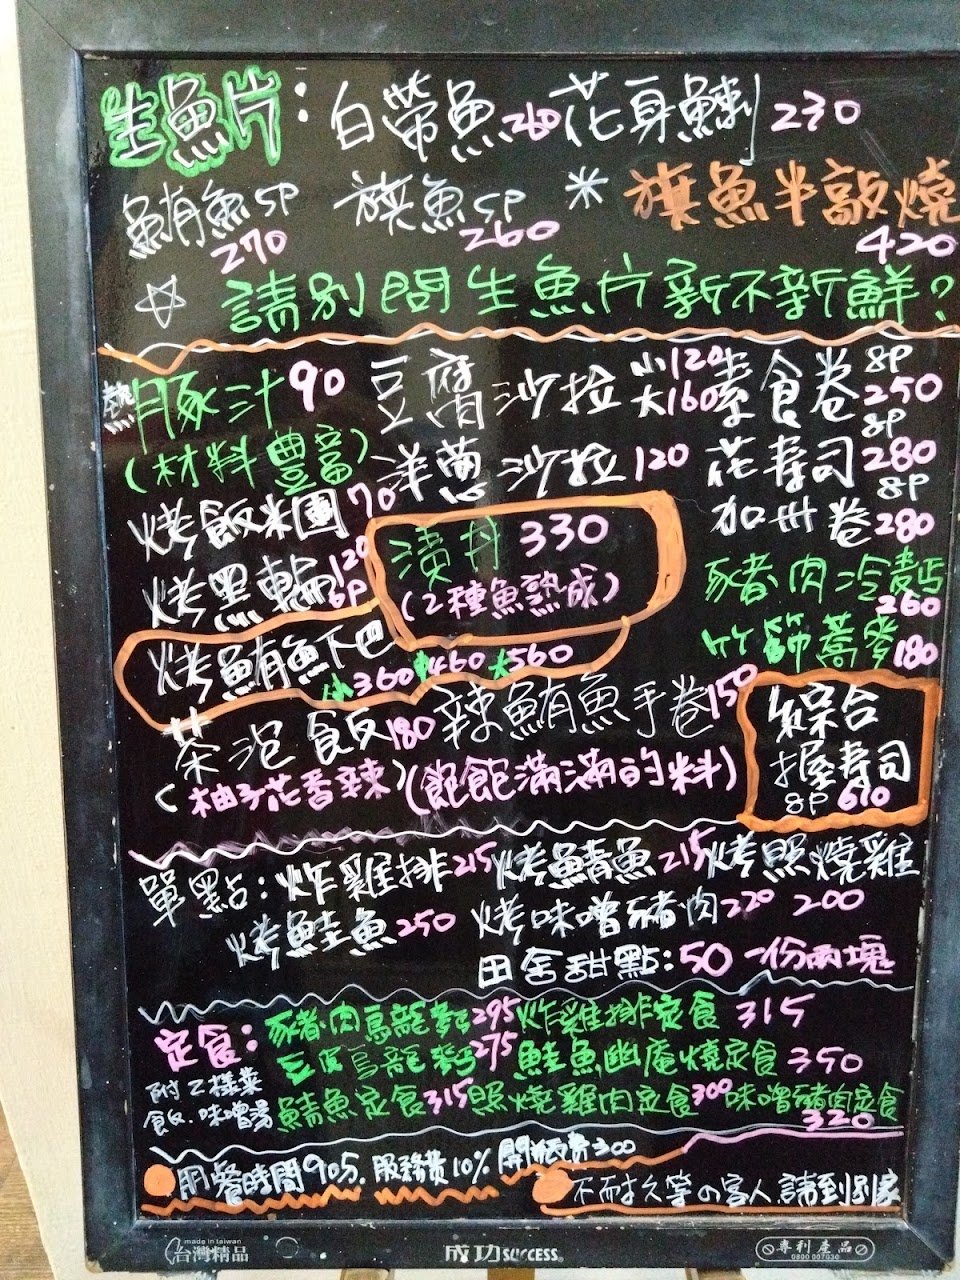 生魚片：白帶魚260 花身鯻 230
鮪魚5P 270 旗魚5P 260 ＊旗魚半敲燒 420
☆ 請別問生魚片新不新鮮?
熱豚汁 90 豆腐沙拉 小120 大160 素食卷 8P 250
(材料豐富) 洋蔥沙拉 120 花壽司 8P 280
烤飯米團 70 加州卷 8P 280
漬丼 330
烤黑輪 120 6P (2種魚熟成) 豬肉冷麵 260
烤鮪魚下巴 小360 中460 大560 竹篩蕎麥 180
茶泡飯 180 辣鮪魚手卷 150 綜合握壽司 8P 610
(柚子花香辣) (飽飽滿滿的料)
單點：炸雞排 215 烤鯖魚 215 烤照燒雞 200
烤鮭魚 250 烤味噌豬肉 220
田舍甜點：50 一份兩塊
定食：豬肉烏龍麵 295 炸雞排定食 315
烏龍麵 275 鮭魚幽庵燒定食 350
附2樣菜 飯.味噌湯 鯖魚定食 315 照燒雞肉定食 300 味噌豬肉定食 320
用餐時間905. 服務費10% 開瓶費300
不耐久等の客人請到別家
made in taiwan
台灣精品 成功 SUCCESS 專利產品
0800 007030